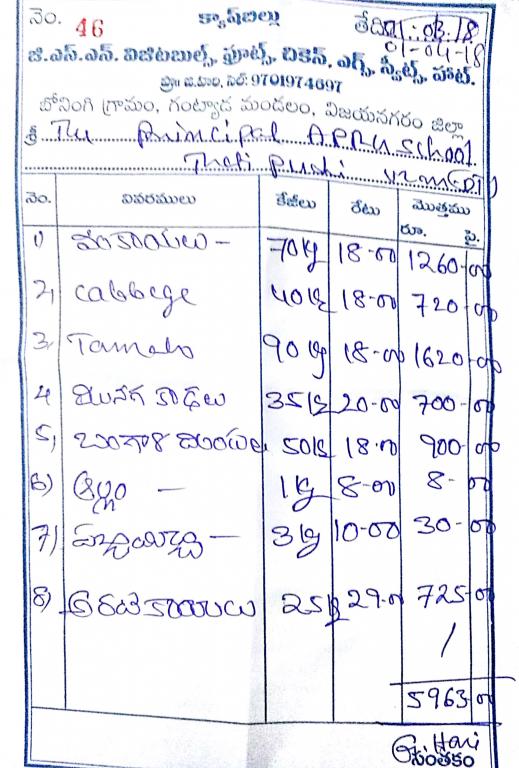 నెం. 46 క్యాష్‌బిల్లు తేది 01-03-18
01-04-18
జి.ఎస్.ఎన్. విజిటబుల్స్, ఫ్రూట్స్, చికెన్, ఎగ్స్, స్వీట్స్, హాట్.
ప్రొ॥ జి.హరి, సెల్: 9701974697
బోనింగి గ్రామం, గంట్యాడ మండలం, విజయనగరం జిల్లా
శ్రీ The Principal APRJ School
Thati Pudi VZM(DT)
నెం. వివరములు కేజీలు రేటు మొత్తము
రూ. పై.
1) వంకాయలు - 70kg 18-00 1260-00
2, Cabbege 40kg 18-00 720-00
3, Tamato 90kg 18-00 1620-00
4 మునగ కాడలు 35kg 20-00 700-00
5, బంగాళ దుంపలు 50kg 18-00 900-00
6) అల్లం - 1kg 8-00 8-00
7) పచ్చిమిర్చి - 3kg 10-00 30-00
8) అరటికాయలు 25kg 29-00 725-00
5963-00
G Hari
సంతకం